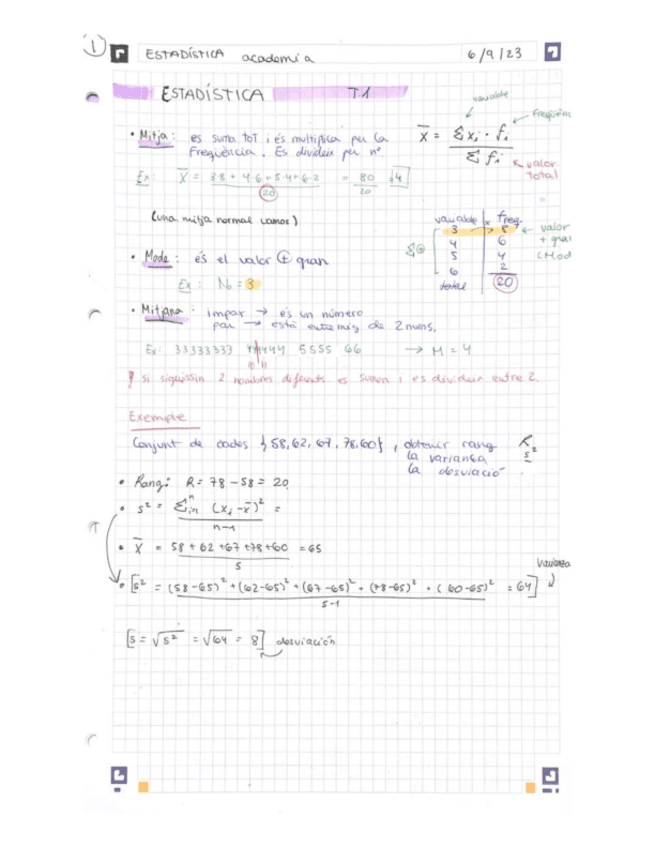 1
ESTADÍSTICA academia 6/9/23
ESTADÍSTICA T.1
• Mitja: es suma tot i és multiplica per la
freqüència. És divideix per nº.
X̄ = Σ xi · fi / Σ fi
variable
freqüèn
valor
total
Ex: X̄ = 3·8 + 4·6 + 5·4 + 6·2 / 20 = 80 / 20 = 4
(una mitja normal vamos)
variable x freq.
3 → 8 ← valor
4 6 + gran
5 4 (Mod
6 2
total 20
Σ⊕
• Moda: és el valor ⊕ gran
Ex: No = 3
• Mitjana: impar → és un número
par → està entremig de 2 nums.
Ex: 33333333 444444 5555 66 → M = 4
! Si siguéssin 2 nombres diferents es sumen i es divideix entre 2.
Exemple
Conjunt de dades {58, 62, 67, 78, 60}, obtenir rang R
la variança s²
la desviació
• Rang: R = 78 - 58 = 20
• s² = Σ (xi - x̄)² / n-1 =
• X̄ = 58 + 62 + 67 + 78 + 60 / 5 = 65
Varianza
• [s² = (58-65)² + (62-65)² + (67-65)² + (78-65)² + (60-65)² / 5-1 = 64]
[s = √s² = √64 = 8] desviación